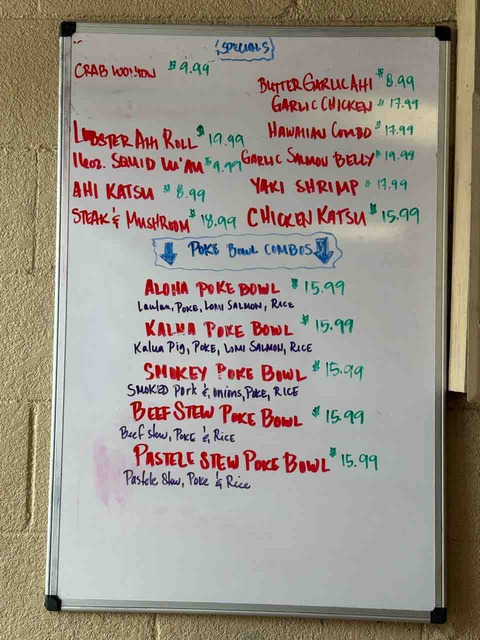 SPECIALS
CRAB WONTON $9.99
BUTTER GARLIC AHI $8.99
GARLIC CHICKEN $17.99
LOBSTER AHI ROLL $19.99
HAWAIIAN COMBO $17.99
16oz. SQUID LU'AU $9.99
GARLIC SALMON BELLY $19.99
AHI KATSU $8.99
YAKI SHRIMP $17.99
STEAK & MUSHROOM $18.99
CHICKEN KATSU $15.99
POKE BOWL COMBOS
ALOHA POKE BOWL $15.99
Laulau, POKE, LOMI SALMON, RICE
KALUA POKE BOWL $15.99
Kalua Pig, POKE, LOMI SALMON, RICE
SMOKEY POKE BOWL $15.99
SMOKED Pork & onions, POKE, RICE
BEEF STEW POKE BOWL $15.99
Beef Stew, POKE & RICE
PASTELE STEW POKE BOWL $15.99
Pastele Stew, Poke & Rice